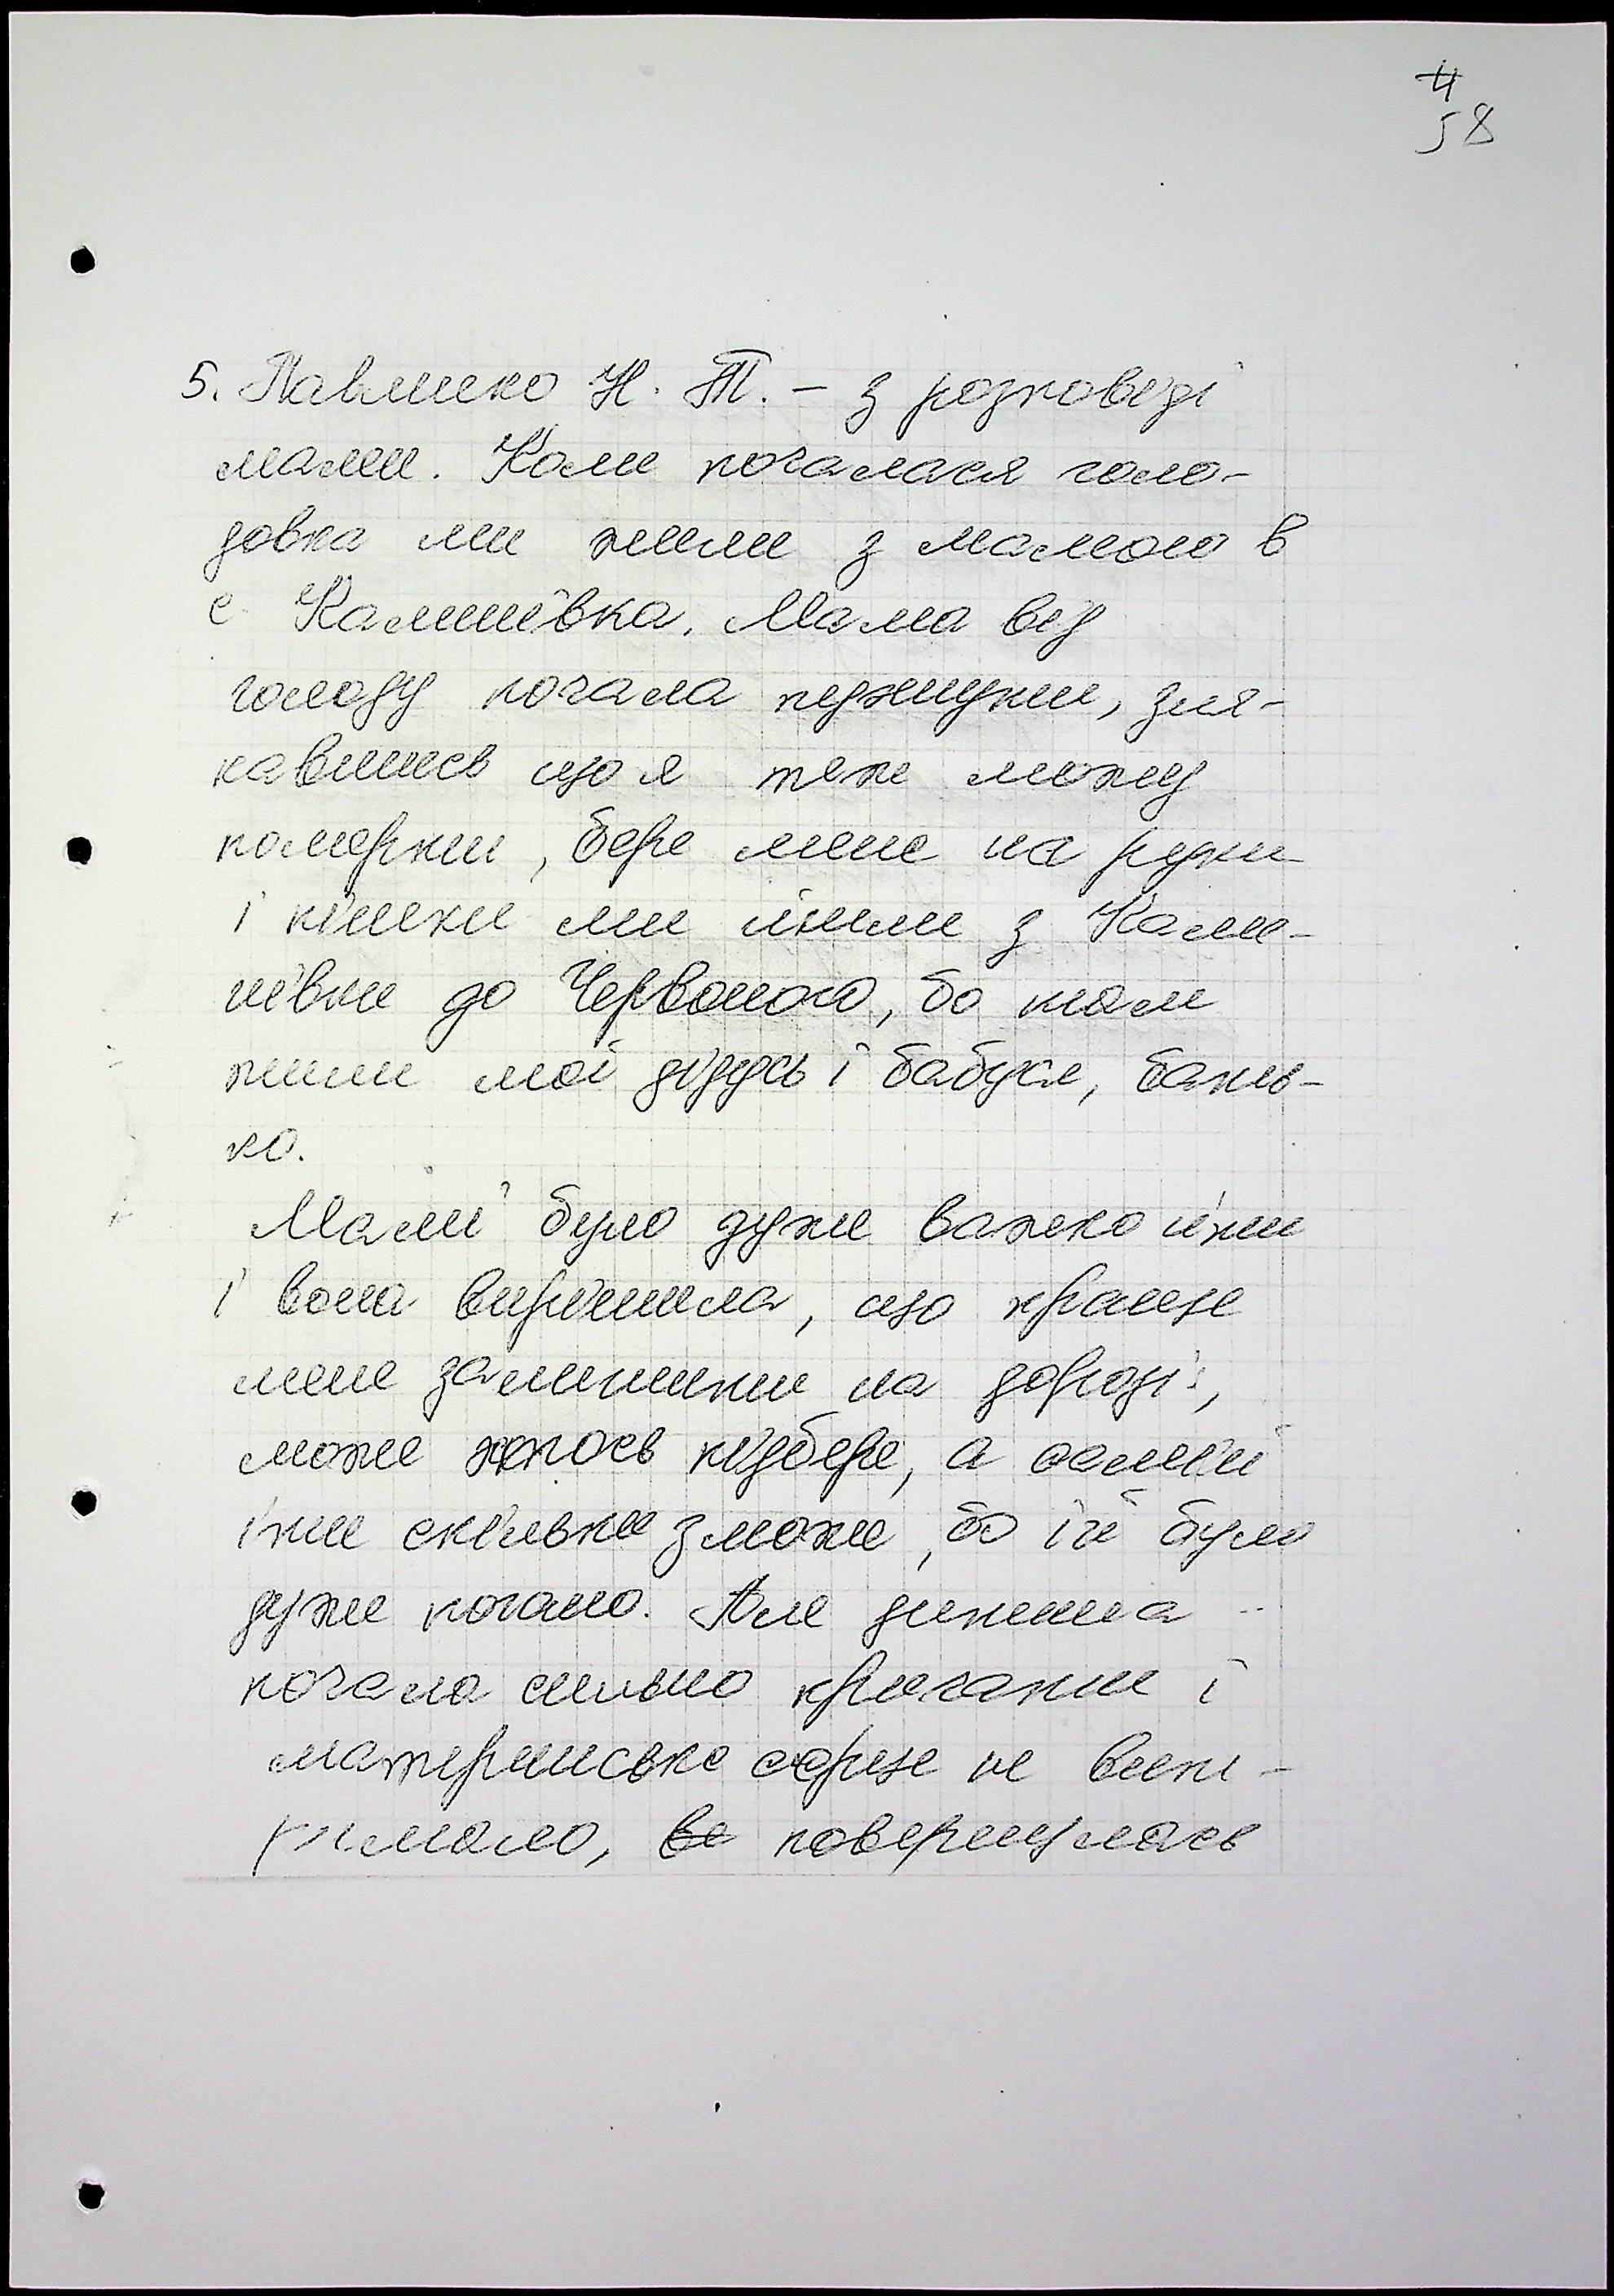 4
58
5. Павленко Н. Т. – з розповіді
мами. Коли почалася голо-
довка ми жили з мамою в
с. Калинівка. Мама від
голоду почала пухнути, зля-
кавшись що я теж можу
померти, бере мене на руки
і пішки ми йшли з Кали-
нівки до Червоного, бо там
жили мої дідусь і бабуся, бать-
ко.
Мамі було дуже важко йти
і вона вирішила, що краще
мене залишити на дорозі,
може хтось підбере, а самій
іти скільки зможе, бо їй було
дуже погано. Але дитина
почала сильно кричати і
материнське серце не вит-
римало, ве повернулась